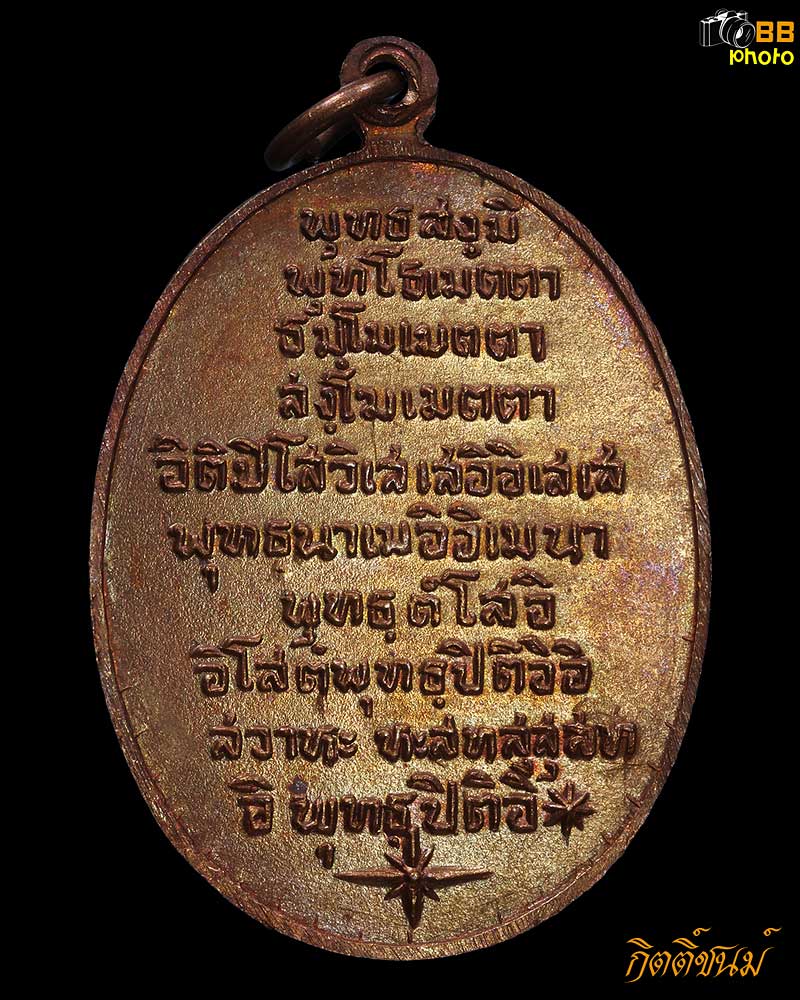 BB
photo
พุทธสํงฺมิ
พุทฺโธเมตตา
ธมฺโมเมตตา
สํงฺโฆเมตตา
อิติปิโสวิเสเสอิอิเสเส
พุทธฺนาเมอิอิเมนา
พุทธฺตํโสอิ
อิโสตํพุทธฺปิติอิอิ
สวาหะ
อิ พุทธฺปิติอิ
กิตติ์ชนม์